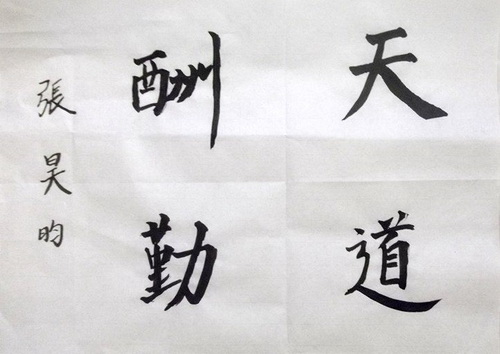 天道
酬勤
張昊昀